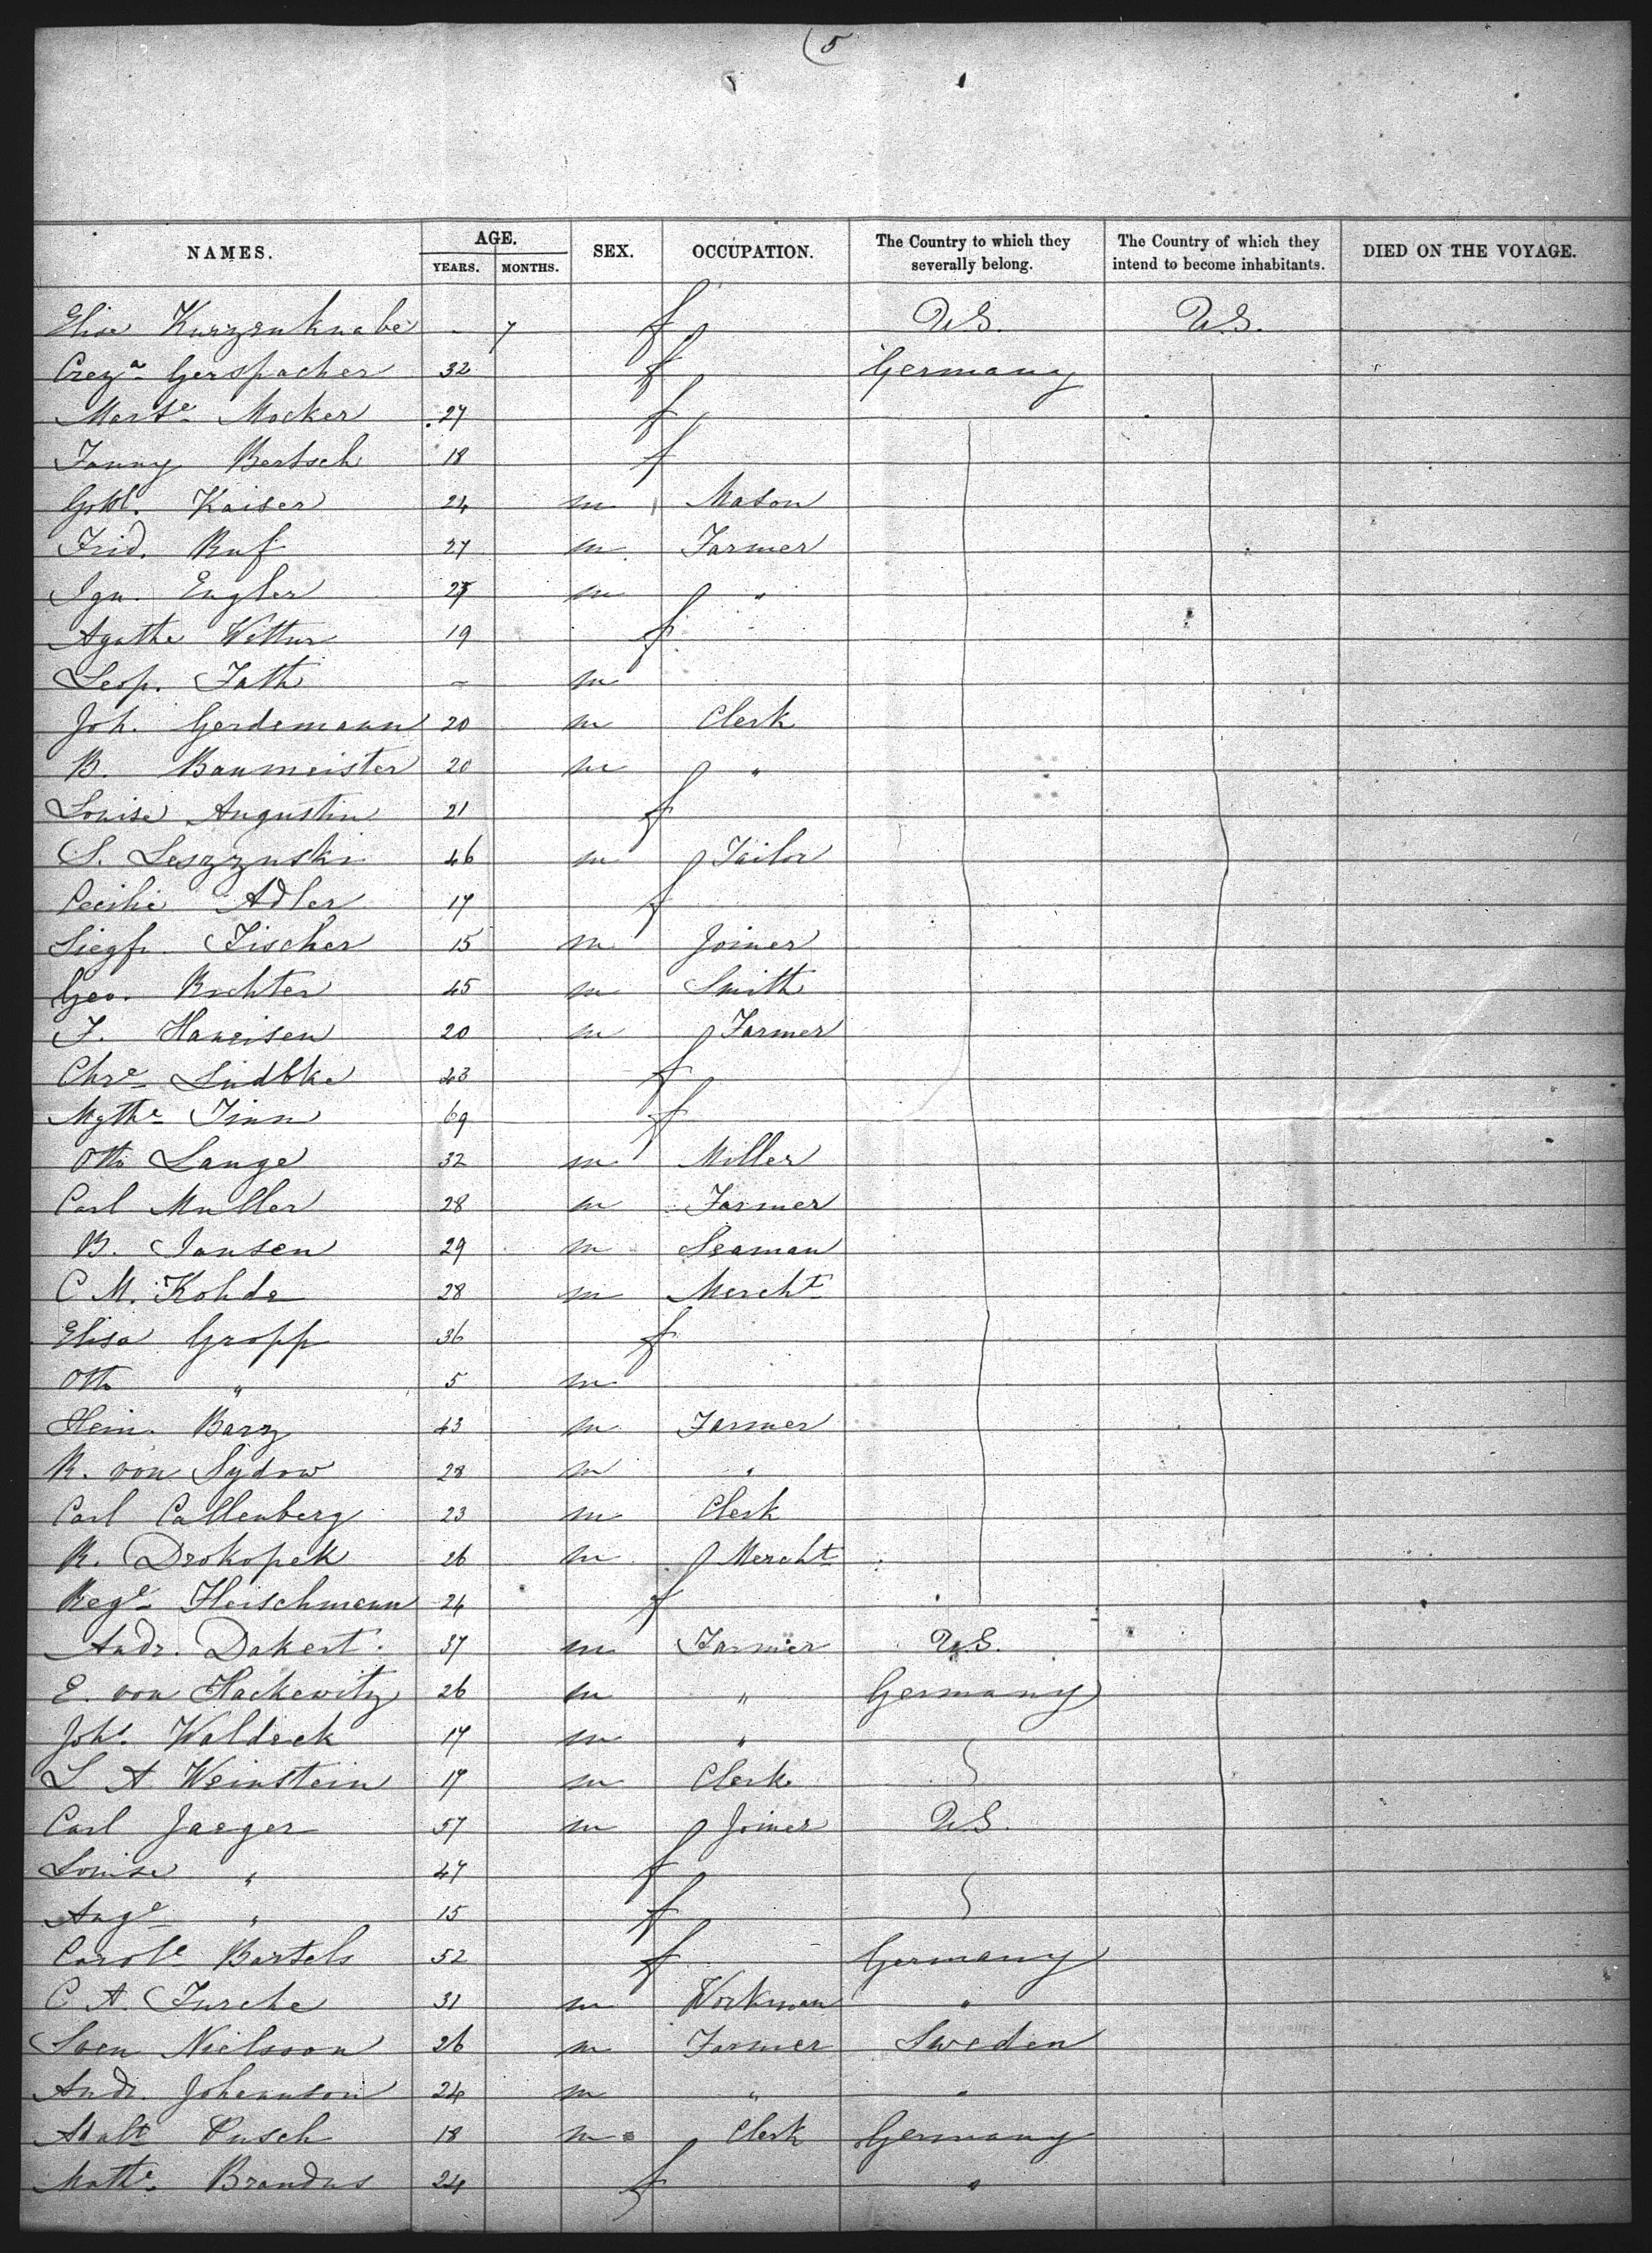 (5
NAMES. AGE. YEARS. MONTHS. SEX. OCCUPATION. The Country to which they severally belong. The Country of which they intend to become inhabitants. DIED ON THE VOYAGE.
Elise Kurzenknabe - 7 f U.S. U.S.
Crezª Gerspacher 32 f Germany
Mocker 27 f
Fanny Bertsch 18 f
Gottl. Kaiser 24 m Mason
Frid. Ruf 27 m Farmer
Ign. Engler m "
Agathe Vettur 19 f
Leop. Fath - m
Joh. Gerdemann 20 m Clerk
B. Baumeister 20 m "
Louise Augustin 21 f
S. Leszznski 46 m Tailor
Cecilie Adler 17 f
Siegfr. Fischer 15 m Joiner
Geo. Richter 45 m Smith
F. Haneisen 20 m Farmer
Chrᵉ Lüdtke f
Mgthᵉ Finn 69 f
Otto Lange 32 m Miller
Carl Muller 28 m Farmer
B. Jansen 29 m Seaman
C M. Kohde 28 m Mercht
Elisa Gropp 36 f
Otto " 5 m
Hein. Barz 43 m Farmer
R. von Sydow 28 m "
Carl Callenberg 23 m Clerk
R. Drokopek 26 m Mercht
Regᵉ Fleischmann 24 f
Andr. Dakert 37 m Farmer U.S.
E. von Hackewitz 26 m " Germany
Johs. Waldeck 17 m "
L A Weinstein 17 m Clerk
Carl Jaeger 57 m Joiner U.S.
Louise " 47 f
Augᵉ " 15 f
Carolᵉ Bartels 52 f Germany
C A. Fursche 31 m Workman "
Sven Nielsson 26 m Farmer Sweden
Andr. Johannson 24 m " "
Adalt Pusch 18 m Clerk Germany
Mathᵉ Brandus 24 f "